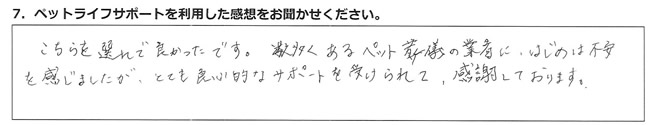 7．ペットライフサポートを利用した感想をお聞かせください。
こちらを選んで良かったです。数多くあるペット葬儀の業者に、はじめは不安
を感じましたが、とても良心的なサポートを受けられて、感謝しております。